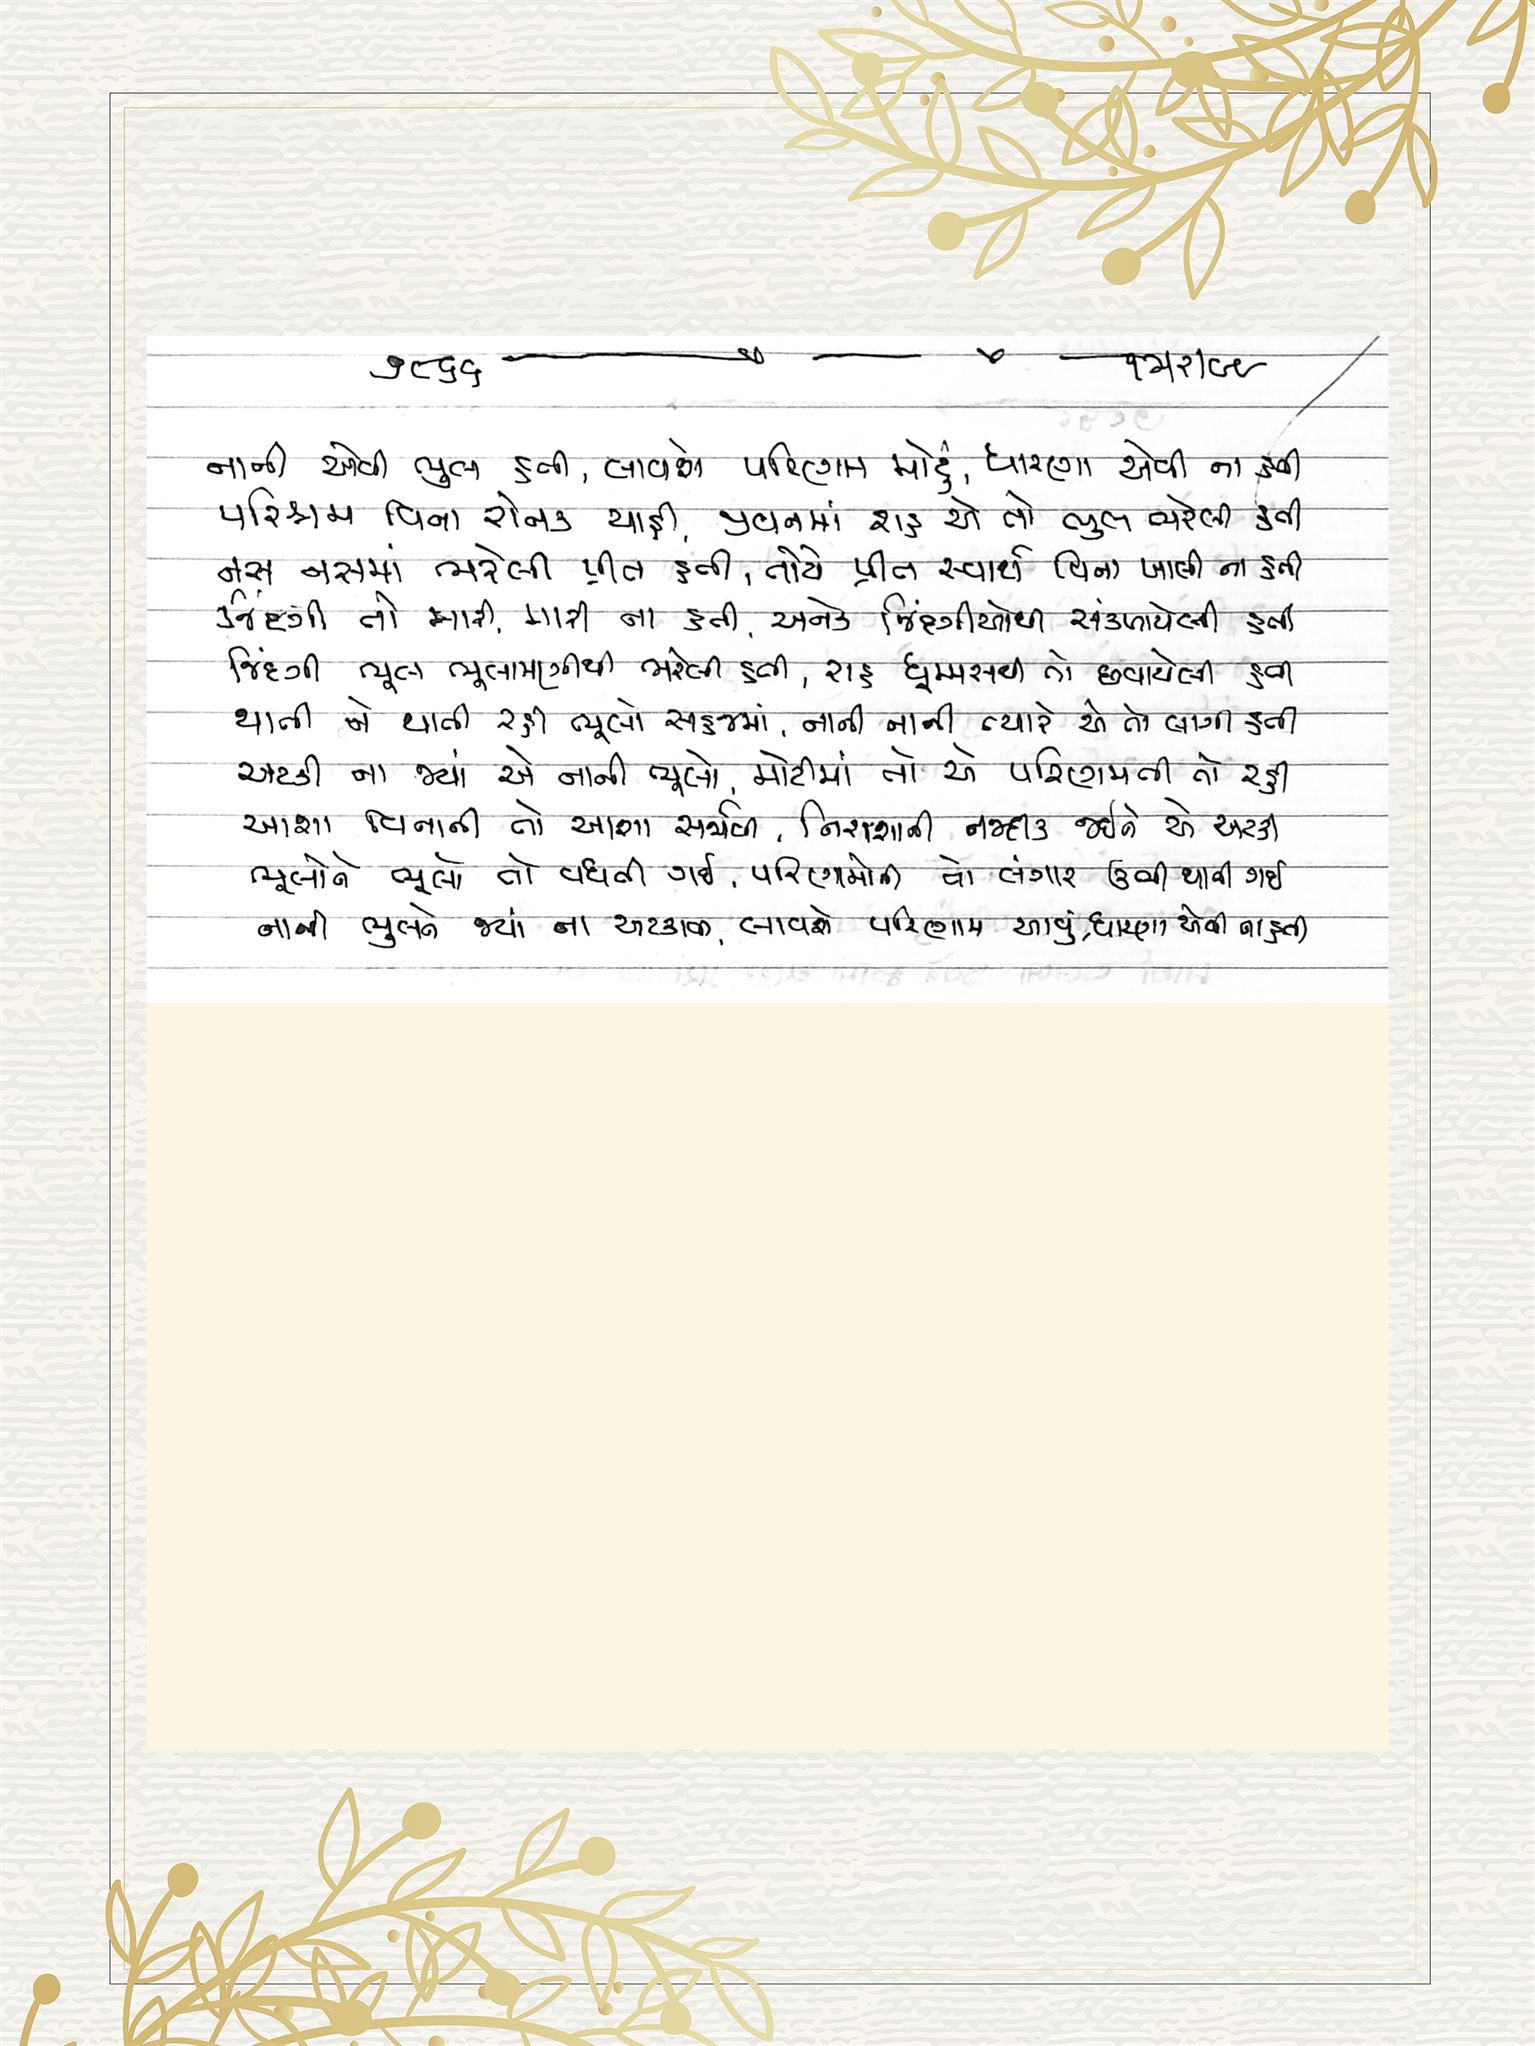 ૭૯૬૬
નાની એવી ભુલ હતી, લાવશે પરિણામ મોટું, ધારણા એવી ના હતી
પરિશ્રમ વિના રોનક ચાહી, જીવનમાં રાહ એ તો ભુલ ભરેલી હતી
નસ નસમાં ભરેલી પ્રીત હતી, તોયે પ્રીત સ્વાર્થ વિના ખાલી ના હતી
જિંદગી તો મારી, મારી ના હતી, અનેક જિંદગીઓથી સંકળાયેલી હતી
જિંદગી ભૂલ ભૂલામણીથી ભરેલી હતી, રાહ ધૂમ્મસથી તો છવાયેલી હતી
થાતી ને થાતી રહી ભૂલો સહજમાં, નાની નાની ત્યારે એ તો લાગી હતી
અટકી ના જ્યાં એ નાની ભૂલો, મોટીમાં તો એ પરિણમતી તો રહી
આશા વિનાની તો આશા સર્જાવી, નિરાશાની નજદીક જઈને એ અટકી
ભૂલોને ભૂલો તો વધતી ગઈ, પરિણામોની તો લંગાર ઉભી થાતી ગઈ
નાની ભુલને જ્યાં ના અટકાવી, લાવશે પરિણામ આવું, ધારણા એવી ના હતી